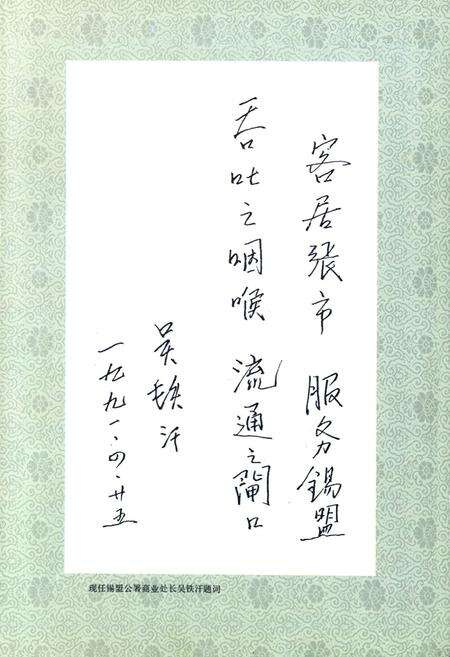 客居張市 服务錫盟
吞吐之咽喉 流通之閘口
吴铁汗
一九九一·四·廿五
现任锡盟公署商业处长吴铁汗题词